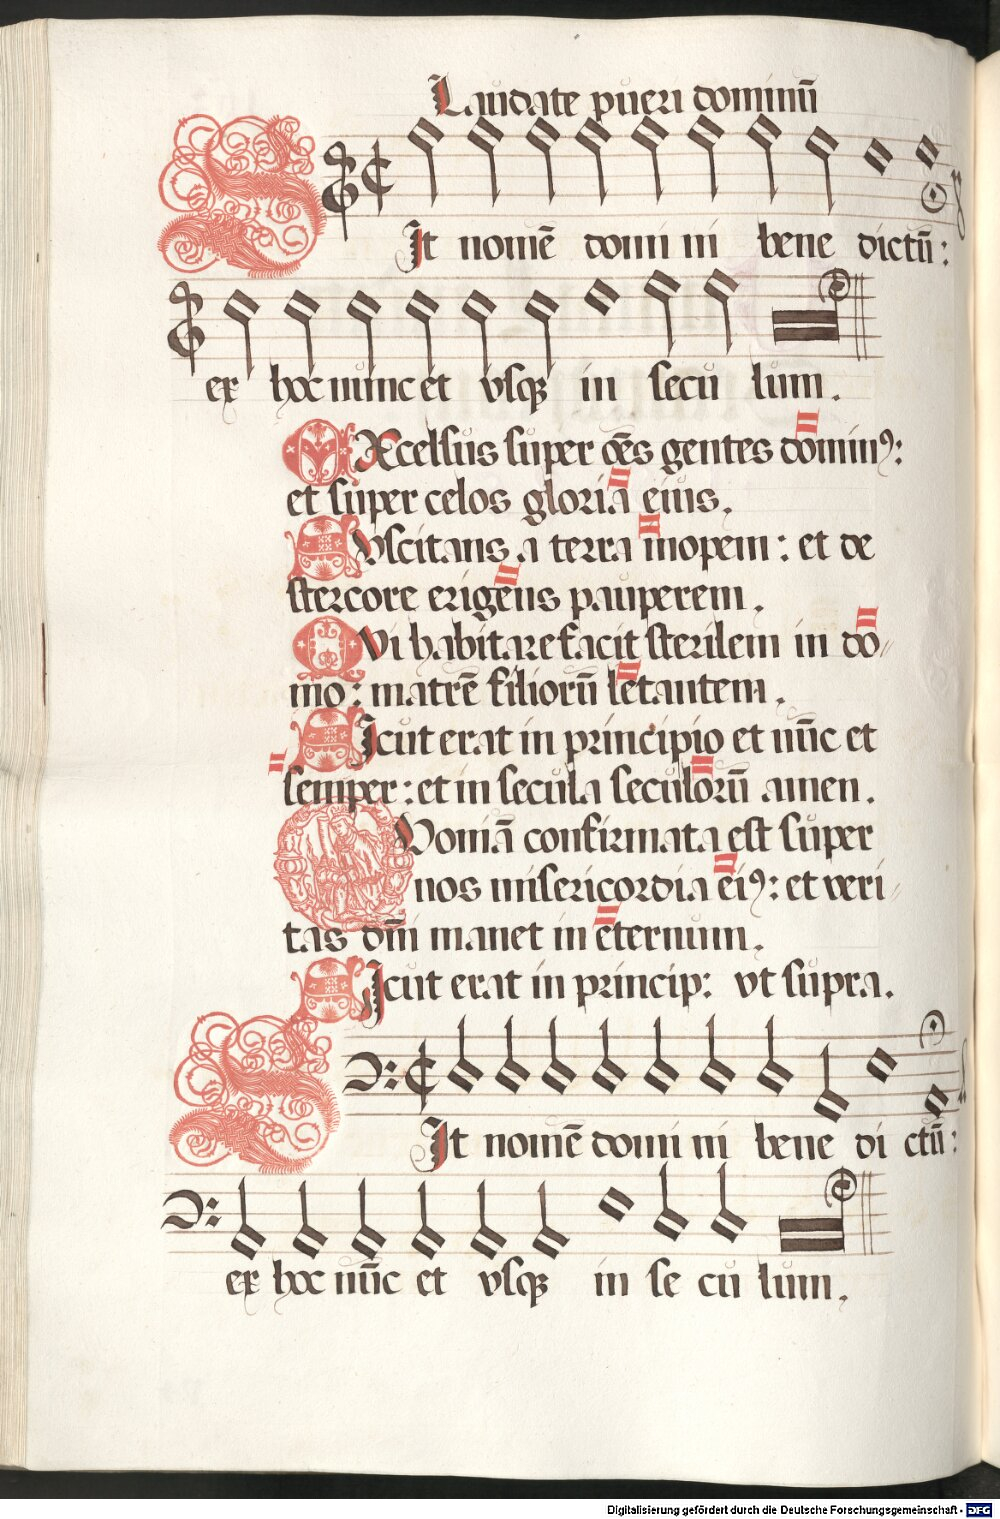 Laudate pueri dominū
Sit nomē domini bene dictū:
ex hoc nunc et vsqꝫ in secu lum.
EXcelsus super oēs gentes dominꝰ:
et super celos gloria eius.
SVscitans a terra inopem: et de
stercore erigens pauperem.
QVi habitare facit sterilem in do⸗
mo: matrē filiorū letantem.
SIcut erat in principio et nūc et
semper: et in secula seculorū amen.
QVoniā confirmata est super
nos misericordia eiꝰ: et veri⸗
tas dn̄i manet in eternum.
SIcut erat in princip: vt supra.
SIt nomē domini bene di ctū:
ex hoc nūc et vsqꝫ in se cu lum.
Digitalisierung gefördert durch die Deutsche Forschungsgemeinschaft - DFG